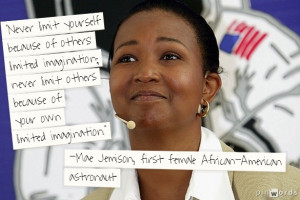 "Never limit yourself
because of others
limited imagination;
never limit others
because of
your own
limited imagination"
-Mae Jemison, first female African-American
astronaut